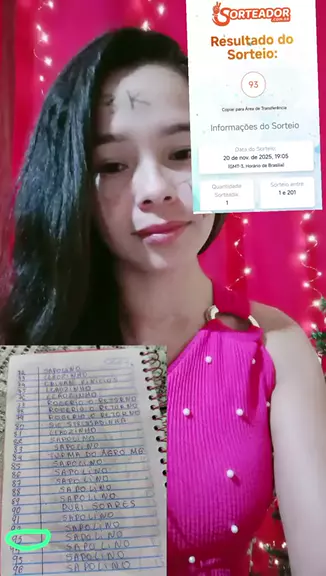 SORTEADOR
.com.br
Resultado do
Sorteio:
93
Copiar para Área de Transferência
Informações do Sorteio
Data do Sorteio
20 de nov. de 2025, 19:05
(GMT-3, Horário de Brasília)
Quantidade
Sorteada
1
Sorteio entre
1 e 201
K
SAPOLINO
CLAUDINHO
CLAUDINHO
CLAUDINHO
ROGERIO O RETORNO
ROGERIO O RETORNO
ROGERIO O RETORNO
80
81 CLAUDINHO
SAPOLINO
83 SAPOLINO
84 TURMA DO AGRO MB
85 SAPOLINO
86 SAPOLINO
87 SAPOLINO
88 SAPOLINO
89 SAPOLINO
90 DUHI SOARES
91 SAPOLINO
SAPOLINO
93 SAPOLINO
SAPOLINO
95 SAPOLINO
96 SAPOLINO